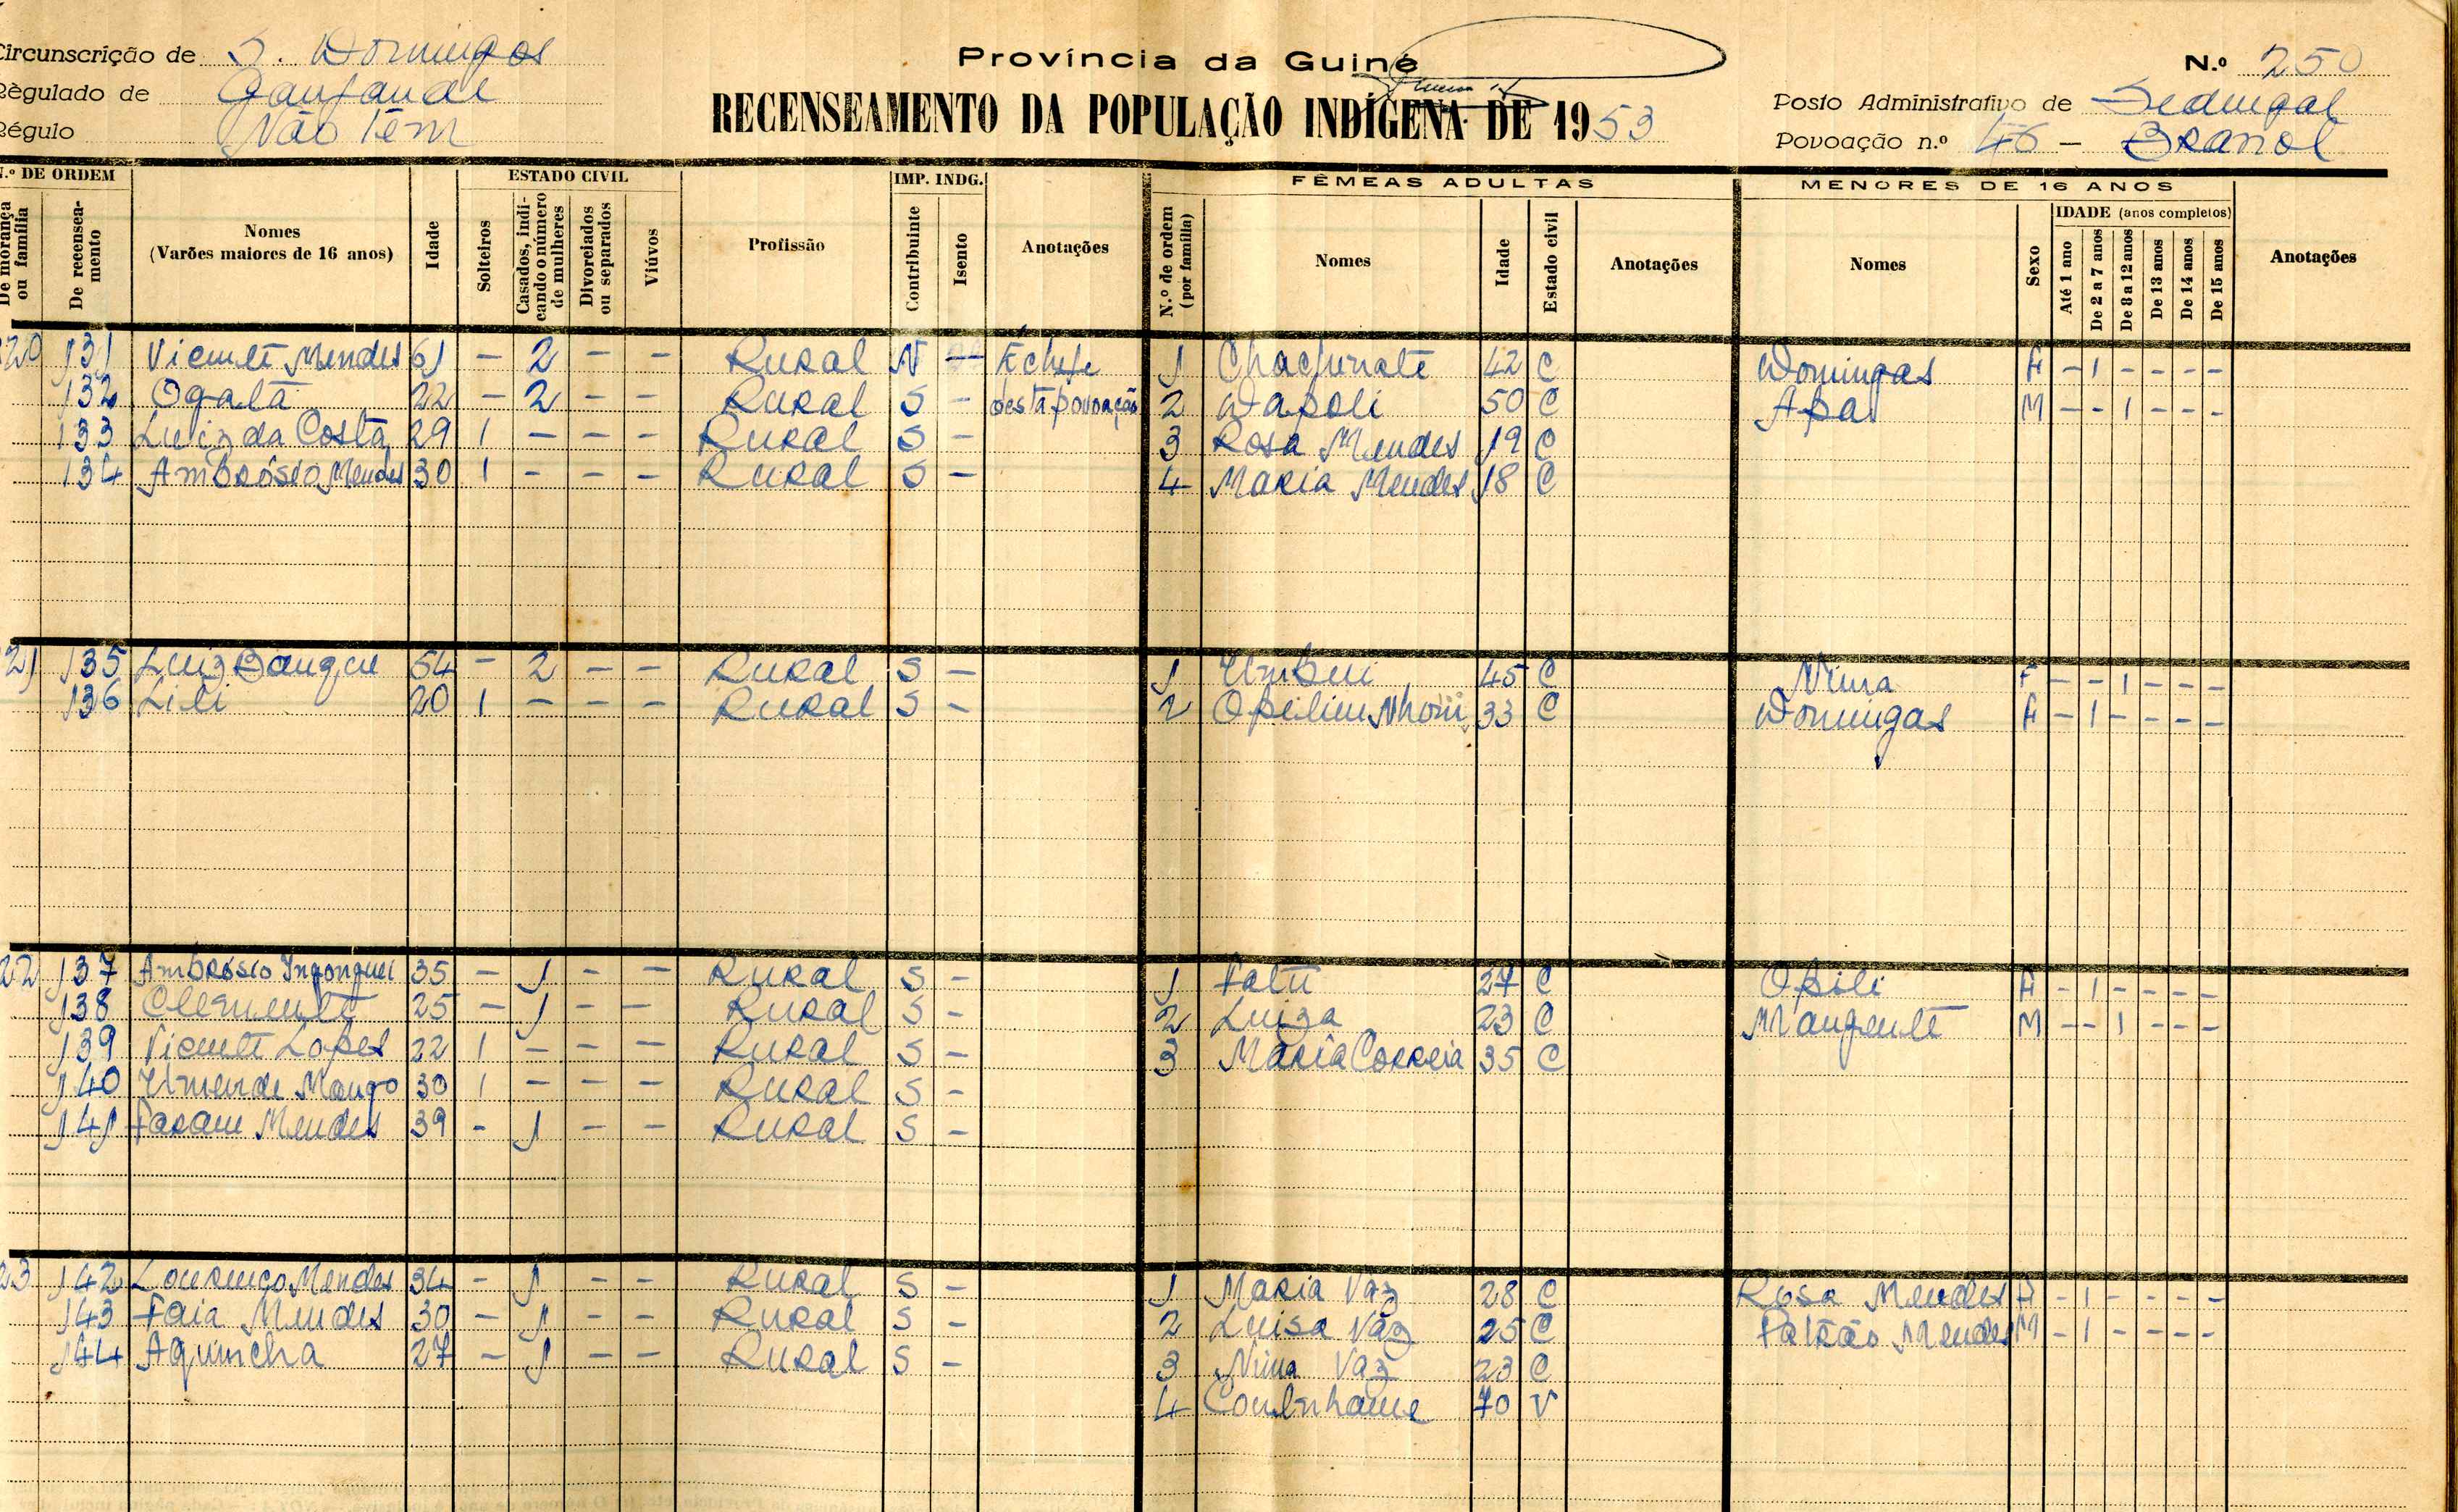 Circunscrição de S. Domingos
Régulado de
Régulo Não Tem
Província da Guiné
RECENSEAMENTO DA POPULAÇÃO INDÍGENA DE 1953
N.º 250
Posto Administrativo de Sedengal
Povoação n.º 46 - Branol
N.º DE ORDEM ESTADO CIVIL IMP. INDG. FÊMEAS ADULTAS MENORES DE 16 ANOS
IDADE (anos completos)
De morança ou família De recenseamento Nomes (Varões maiores de 16 anos) Idade Solteiros Casados, indicando o número de mulheres Divorciados ou separados Viúvos Profissão Contribuinte Isento Anotações N.º de ordem (por família) Nomes Idade Estado civil Anotações Nomes Sexo Até 1 ano De 2 a 7 anos De 8 a 12 anos De 13 anos De 14 anos De 15 anos Anotações
20 131 Vicente Mendes 61 - 2 - - Rural N - É chefe 1 42 C Domingas F - 1 - - - -
132 Ogatá 22 - 2 - - Rural S - desta povoação 2 Dapoli 50 C Apa M - - 1 - - -
133 Luiz da Costa 29 1 - - - Rural S - 3 Rosa Mendes 19 C
134 Ambrósio Mendes 30 1 - - - Rural S - 4 Maria Mendes 18 C
21 135 Luiz 54 - 2 - - Rural S - 1 Umbui 45 C Nina F - - 1 - - -
136 Lili 20 1 - - - Rural S - 2 33 C Domingas F - 1 - - - -
22 137 Ambrósio Ingonguei 35 - 1 - - Rural S - 1 Fatú 27 C Opili F - 1 - - - -
138 Clemente 25 - 1 - - Rural S - 2 Luiza 23 C Mangente M - - 1 - - -
139 Vicente Lopes 22 1 - - - Rural S - 3 Maria Correia 35 C
140 Mango 30 1 - - - Rural S -
141 Mendes 39 - 1 - - Rural S -
23 142 Lourenço Mendes 34 - 1 - - Rural S - 1 Maria Vaz 28 C Rosa Mendes F - 1 - - - -
143 Faia Mendes 30 - 1 - - Rural S - 2 Luisa Vaz 25 C Mendes M - 1 - - - -
144 Aquincha 27 - 1 - - Rural S - 3 Nina Vaz 23 C
4 70 V